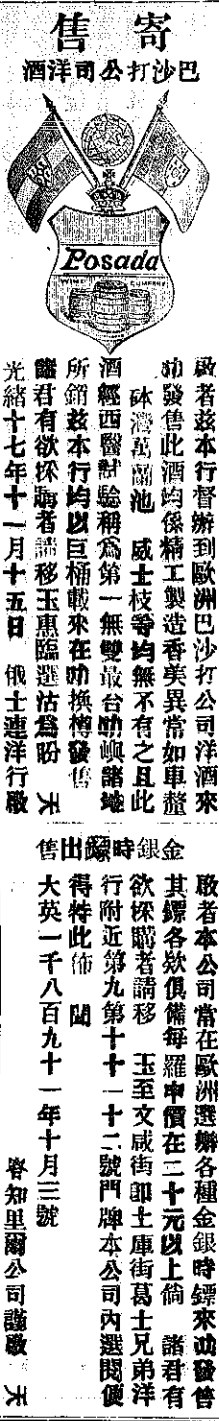 寄售
巴沙打公司洋酒
Posada
WINE COMPANY
啟者茲本行督辦到歐洲巴沙打公司洋酒來
叻發售此酒均係精工製造香美異常如車釐
砵灣萬蘭池 威士枝等均無不有之且此
酒經西醫試驗稱為第一無雙最合叻嶼諸埠
所銷茲本行均以巨桶載來在叻換樽發售
諸君有欲採購者請移玉惠臨選沽為盼 天
光緒十七年十一月十五日 俄士連洋行啟
金銀時鏢出售
啟者本公司常在歐洲選辦各種金銀時鏢來叻發售
其鏢各欵俱備每羅申價在二十元以上倘 諸君有
欲採購者請移 玉至文咸街即土庫街葛士兄弟洋
行附近第九第十十一十二號門牌本公司內選閱便
得特此佈 聞
大英一千八百九十一年十月三號
喀知里爾公司謹啟 天